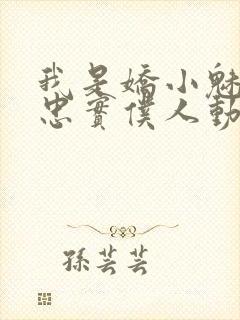 我是嬌小魅
忠實僕人動
孫芸芸